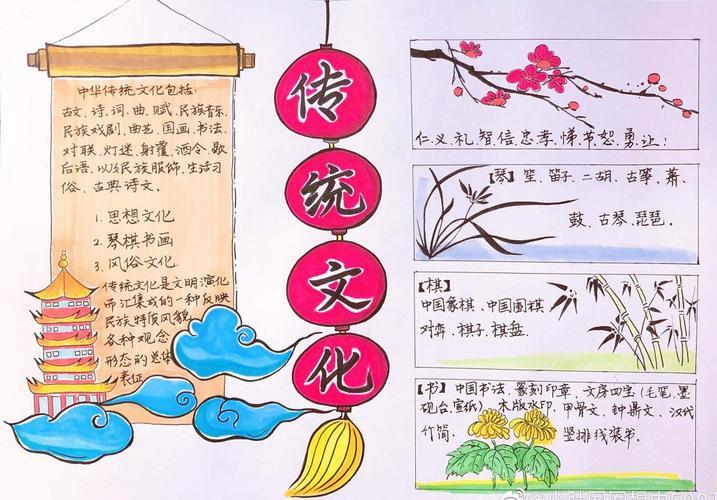 中华传统文化包括:
古文、诗、词、曲、赋、民族音乐、
民族戏剧、曲艺、国画、书法、
对联、灯迷、射覆、酒令、歇
后语、以及民族服饰、生活习
俗、古典诗文。
1. 思想文化
2. 琴棋书画
3. 风俗文化.
传统文化是文明演化
而汇集成的一种反映
民族特质风貌
各种观念
形态的总体
表征
传
统
文
化
仁、义、礼、智、信、忠、孝、悌、节、恕、勇、让;
【琴】笙、笛子、二胡、古筝、萧、
鼓、古琴、琵琶。
【棋】
中国象棋、中国围棋
对弈、棋子、棋盘.
【书】中国书法、篆刻印章、文房四宝(毛笔、墨
砚台、宣纸)、木版水印、甲骨文、钟鼎文、汉代
竹简、竖排线装书.